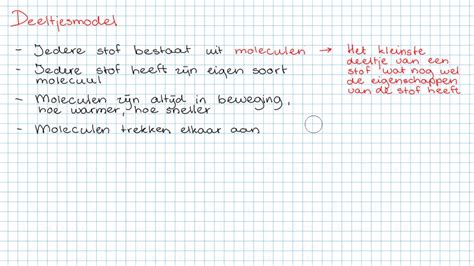 Deeltjesmodel
- Iedere stof bestaat uit moleculen → Het kleinste
deeltje van een
stof wat nog wel
de eigenschappen
van de stof heeft
- Iedere stof heeft zijn eigen soort
molecuul
- Moleculen zijn altijd in beweging,
hoe warmer, hoe sneller
- Moleculen trekken elkaar aan